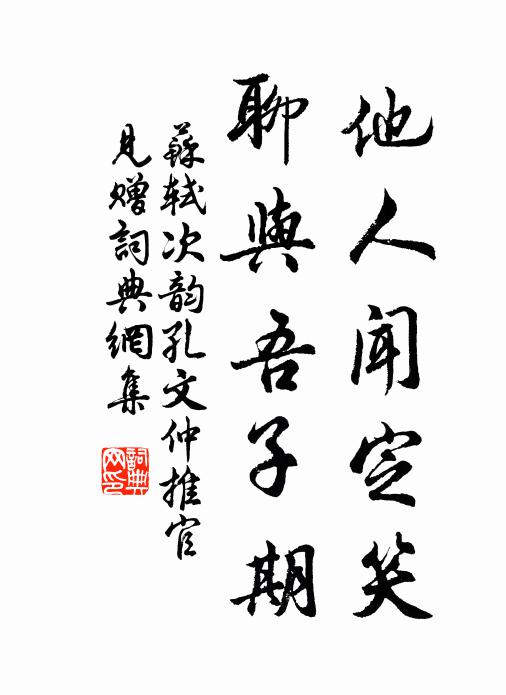 他人闻定笑
聊與吾子期
蘇轼次韵孔文仲推官
見赠詞典網集
詞典
网印